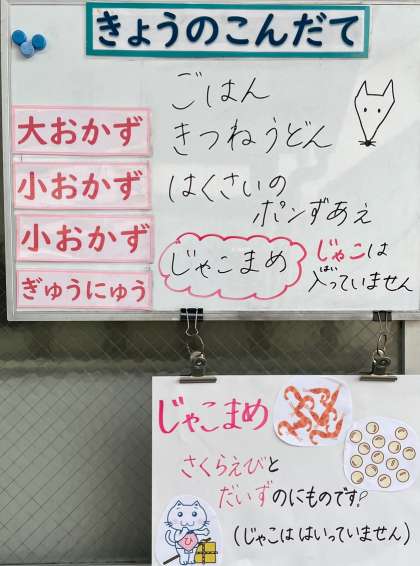 きょうのこんだて
ごはん
大おかず きつねうどん
小おかず はくさいの
ポンずあえ
小おかず じゃこまめ じゃこは
入っていません
ばい
ぎゅうにゅう
じゃこまめ
さくらえびと
だいずのにものです?
(じゃこは はいっていません)
ひ